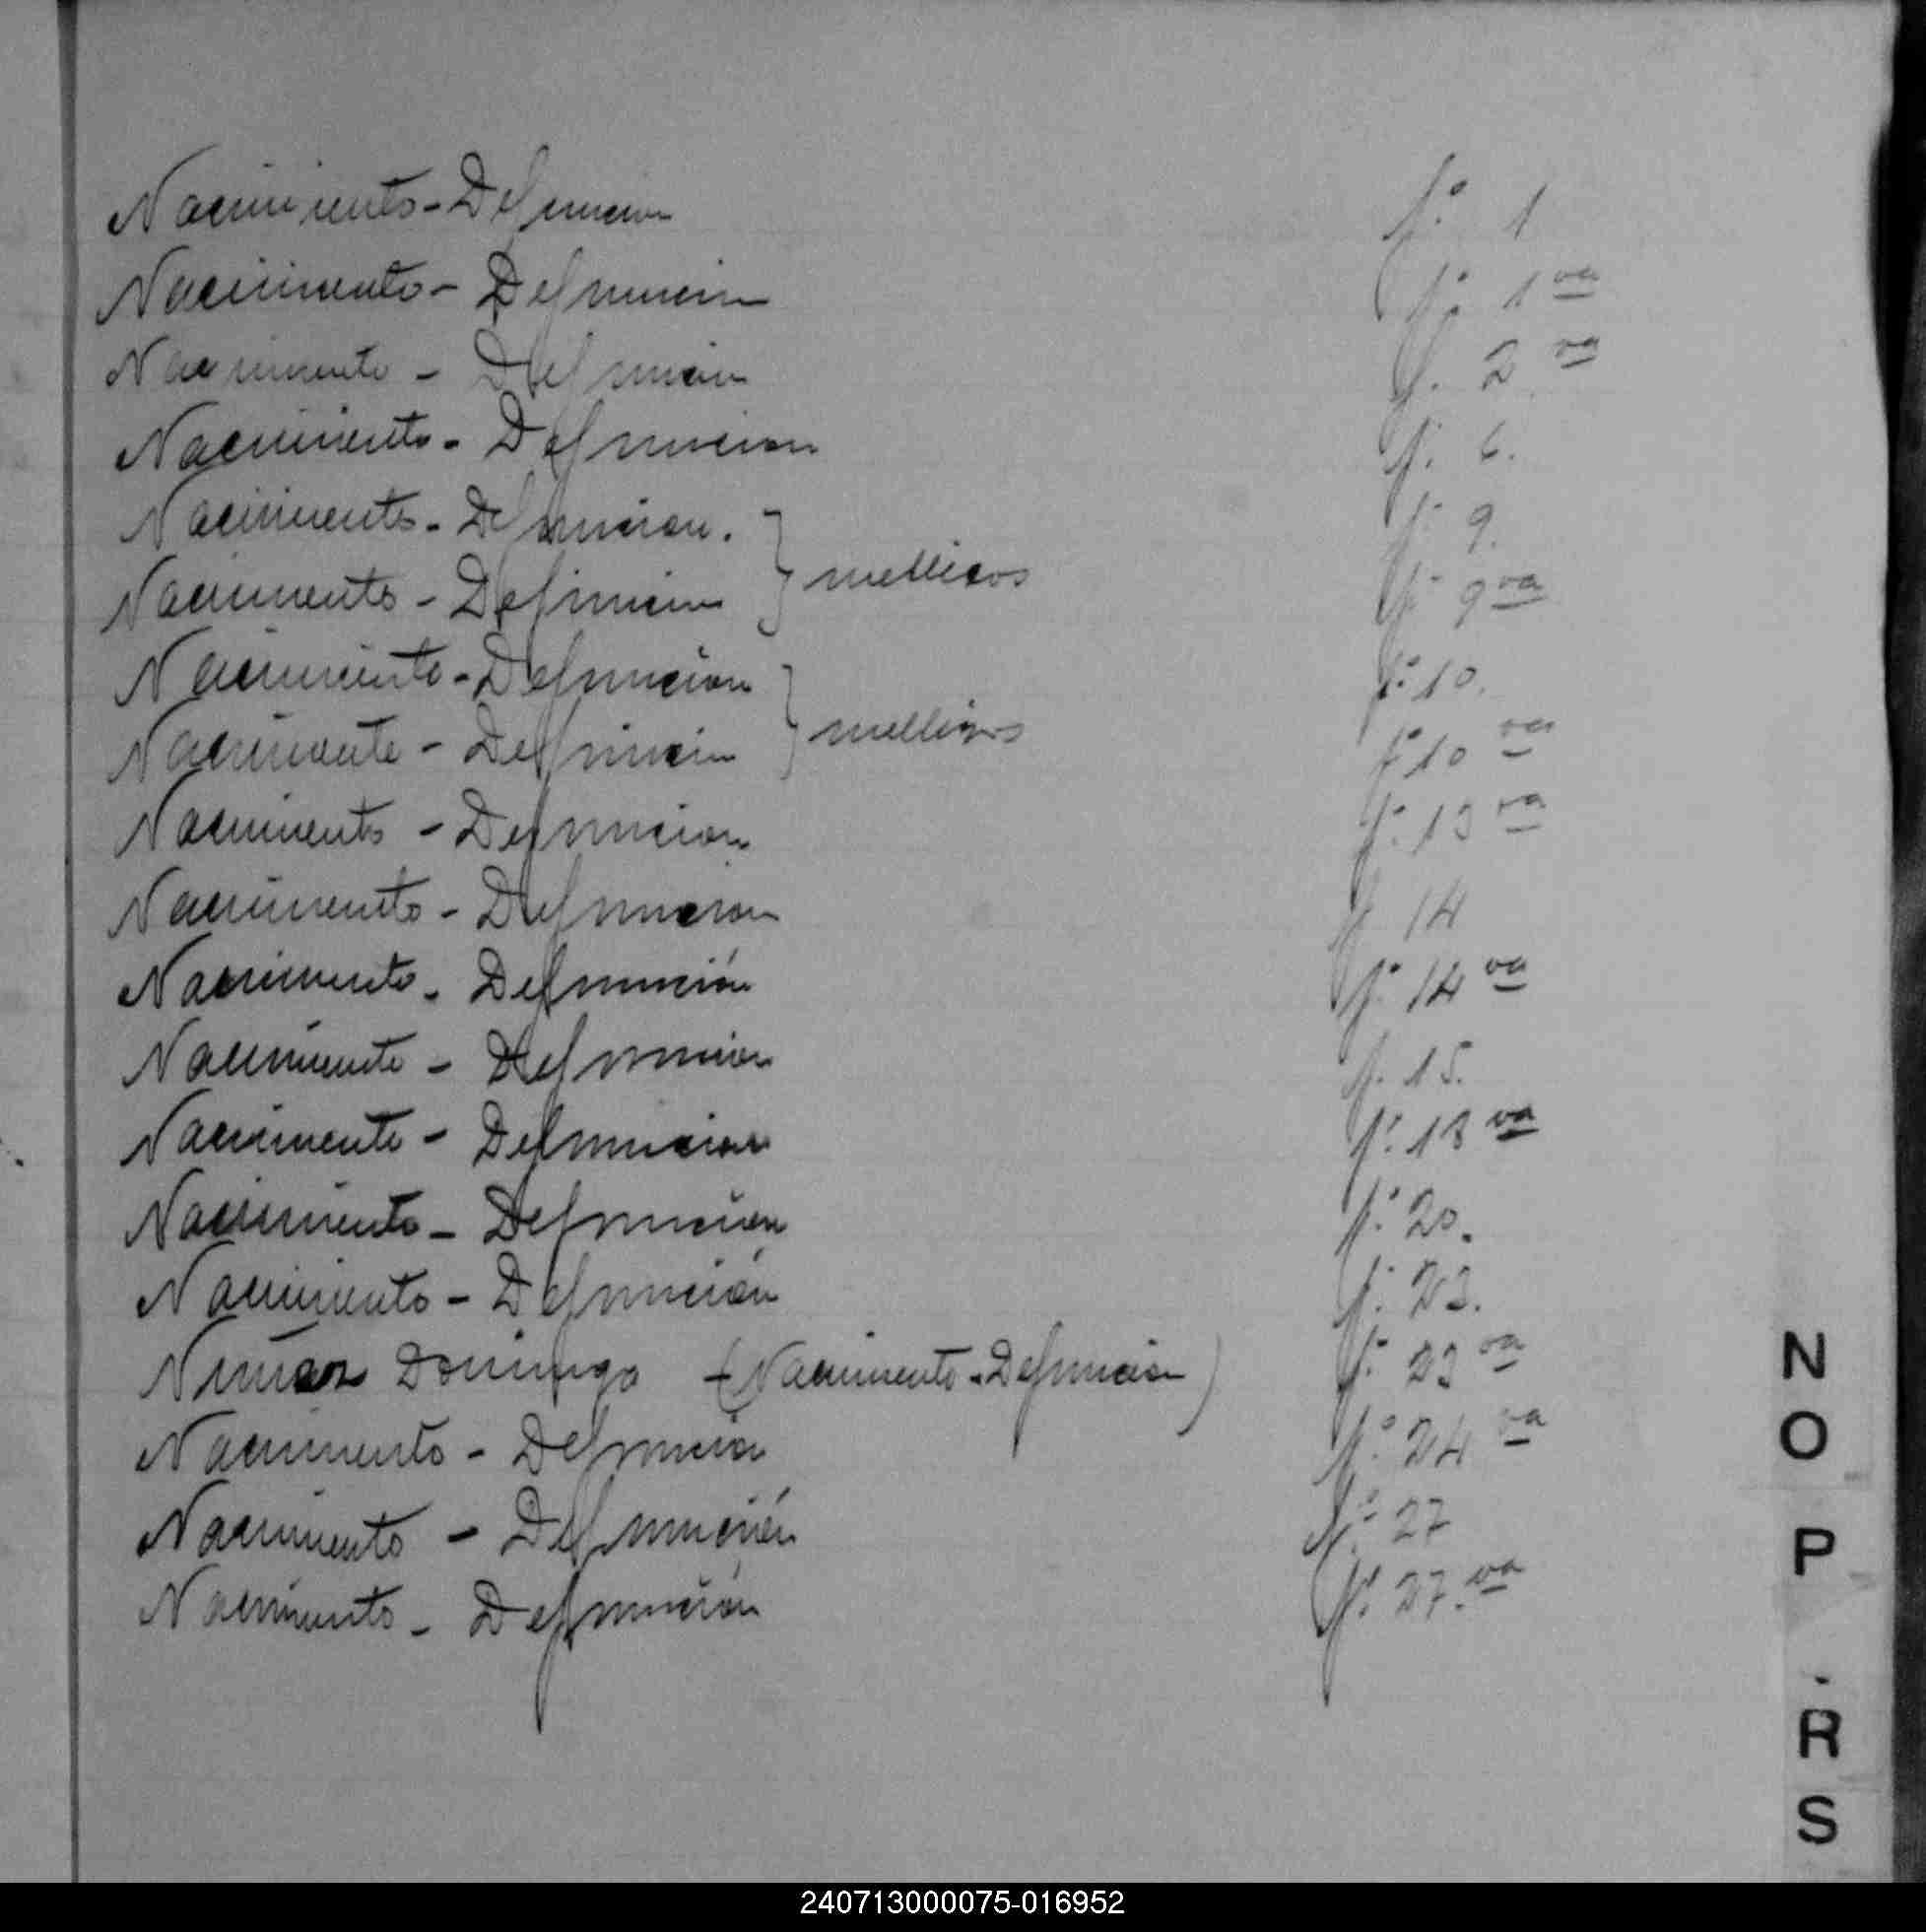 Nacimiento - Defuncion fº 1
Nacimiento - Defuncion fº 1 va
Nacimiento - Defuncion fº 2 va
Nacimiento - Defuncion fº 6.
Nacimiento - Defuncion. fº 9.
Nacimiento - Defuncion fº 9 va
mellizos
Nacimiento - Defuncion fº 10.
Nacimiento - Defuncion fº 10 va
mellizos
Nacimiento - Defuncion fº 13 va
Nacimiento - Defuncion f 14
Nacimiento - Defunción fº 14 va
Nacimiento - Defuncion fº 15.
Nacimiento - Defuncion fº 18 va
Nacimiento - Defuncion fº 20.
Nacimiento - Defunción fº 23.
Domingo (Nacimiento - Defuncion) fº 23 va
Nacimiento - Defuncion fº 24 va
Nacimiento - Defunción fº 27
Nacimiento - Defunción fº 27. va
N
O
P
R
S
240713000075-016952